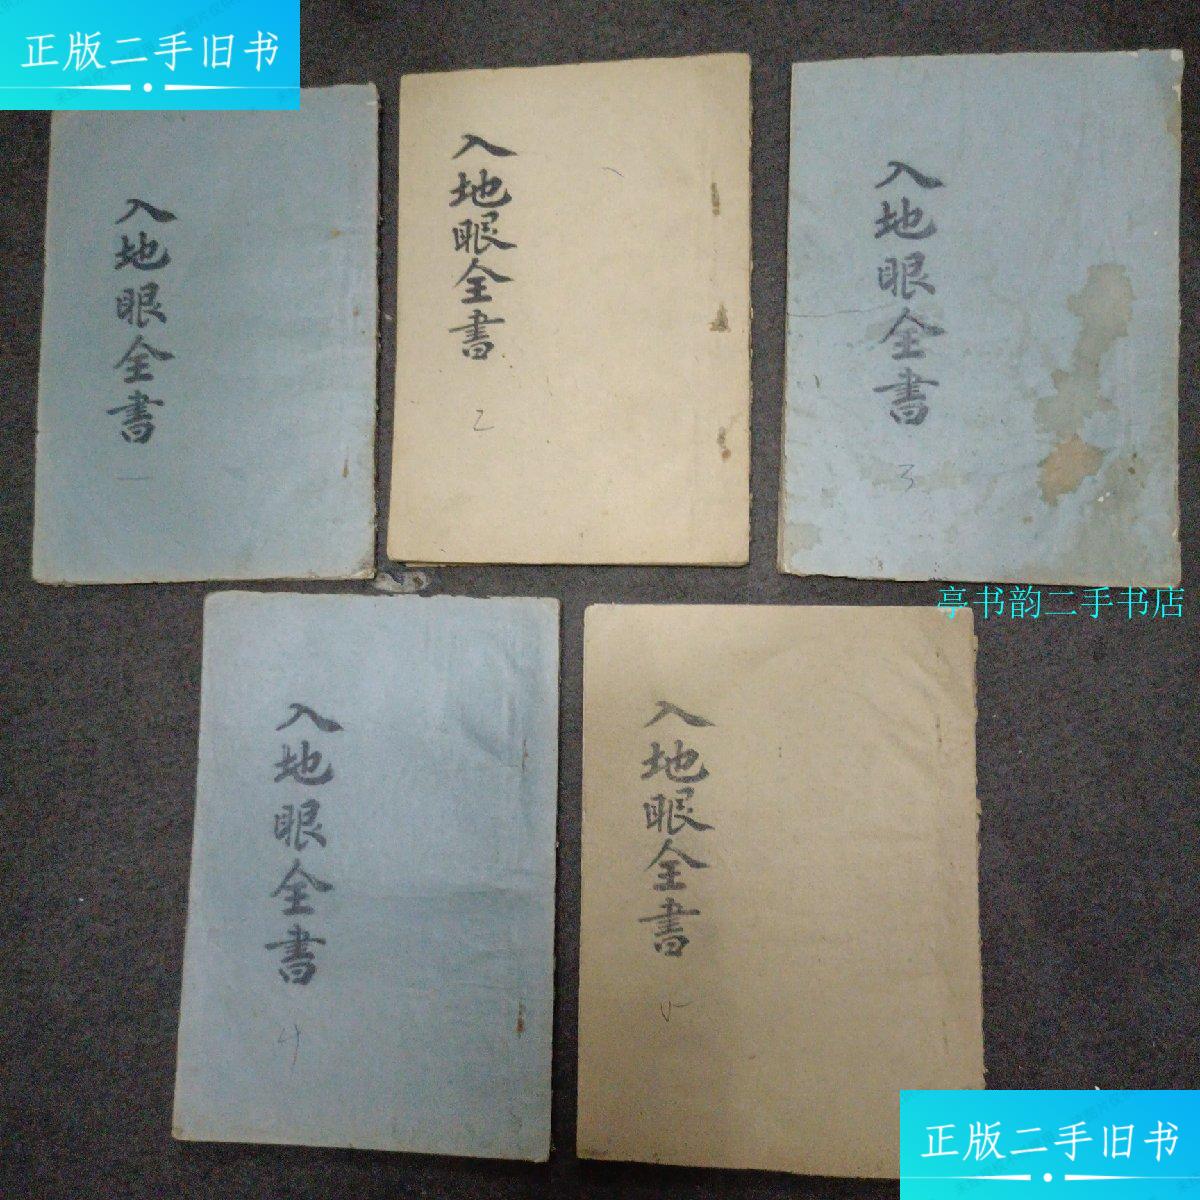 正版二手旧书
入地眼全書
一
入地眼全書
2
入地眼全書
3
亭书韵二手书店
入地眼全書
4
入地眼全書
正版二手旧书